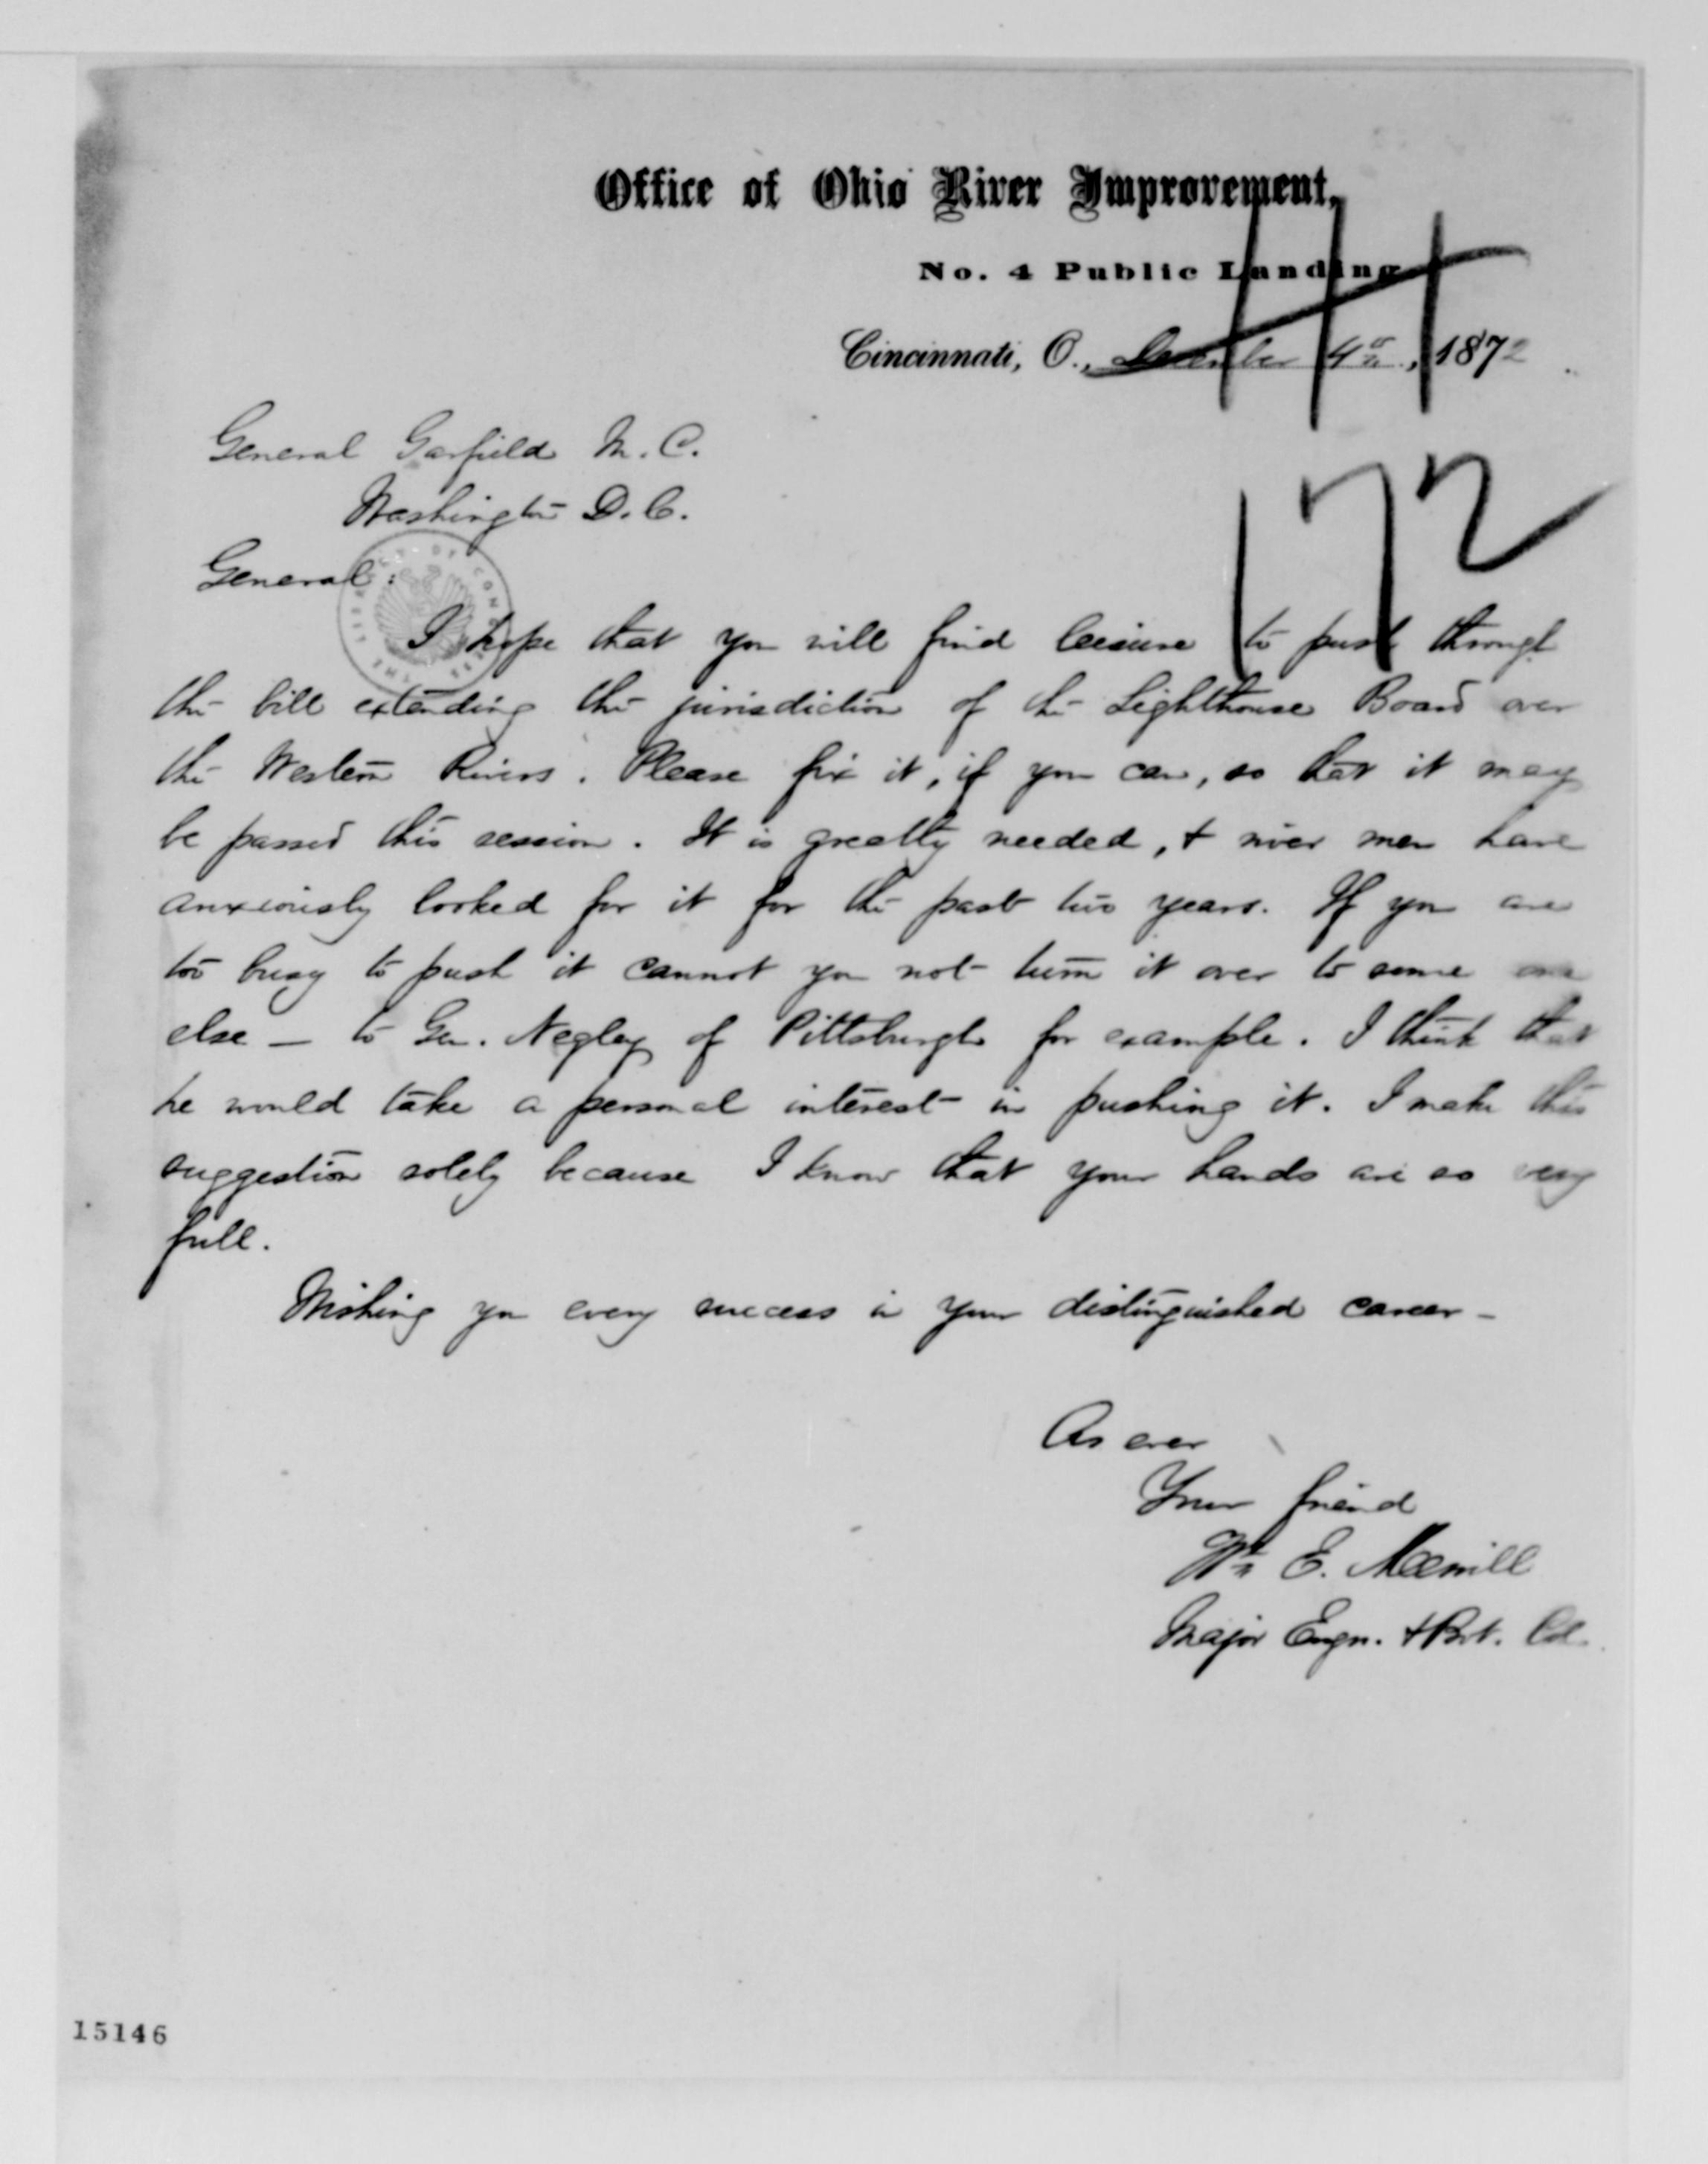 Office of Ohio River Improvement,
No. 4 Public Landing
Cincinnati, O., December 4th, 1872
General Garfield M. C.
Washington D. C.
172
General:
I hope that you will find leisure to push through
the bill extending the jurisdiction of the Lighthouse Board over
the Western Rivers. Please fix it, if you can, so that it may
be passed this session. It is greatly needed, & river men have
anxiously looked for it for the past two years. If you are
too busy to push it cannot you not turn it over to some one
else — to Gen. Negley of Pittsburgh for example. I think that
he would take a personal interest in pushing it. I make this
suggestion solely because I know that your hands are so very
full.
Wishing you every success in your distinguished career –
As ever
Your friend
Wm E. Merrill
Major Engn. & Bvt. Col.
15146